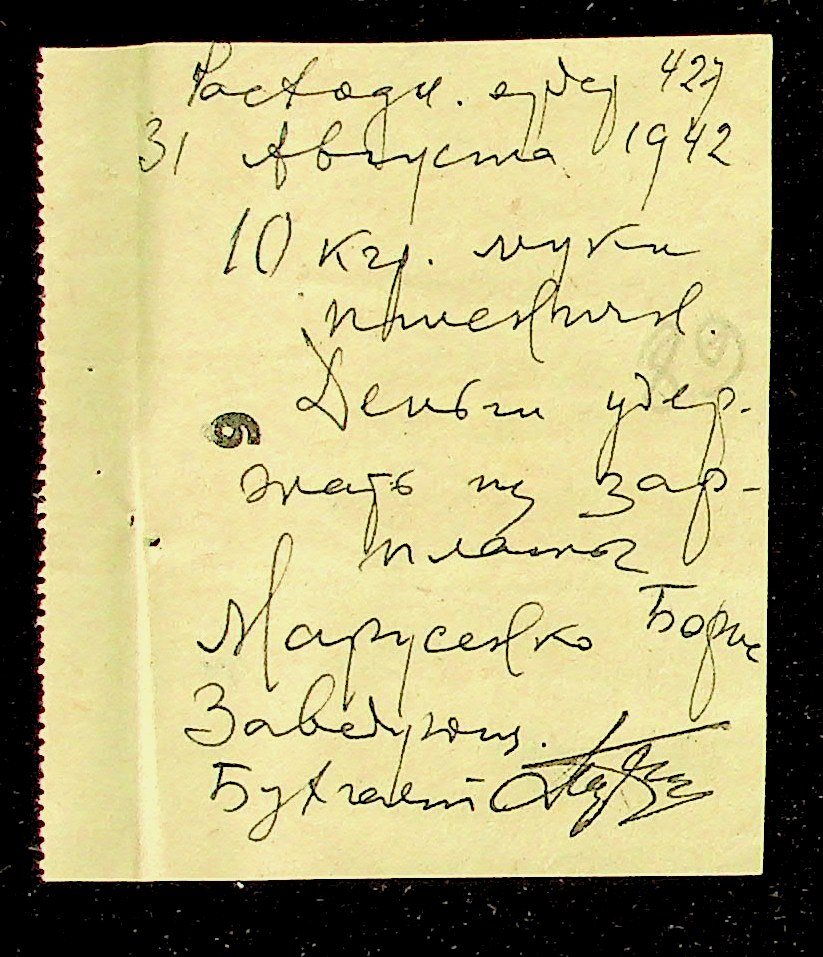 Расходн. ордер 427
31 Августа 1942
10 кгр. муки
пшеничн.
Деньги удер-
жать из зар-
платы
6
Марусенко Борис
Заведующ.
Бухгалт